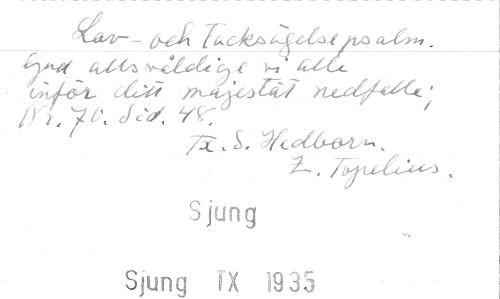 Lov- och Tacksägelsepsalm.
Gud allsvåldige vi alle
inför ditt majestät nedfalle;
Nr. 70. Sid. 48.
Tx. S. Hedborn.
Z. Topelius.
Sjung
Sjung TX 1935